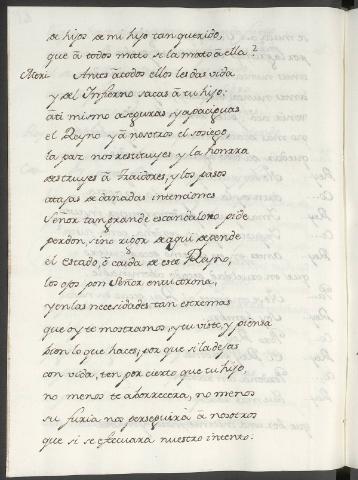 de hijos de mi hijo tan querido,
que à todos mato si la mato à ella?
Alexi Antes à todos ellos les das vida
y del Infierno sacas à tu hijo:
à ti mismo aseguras, y apaciguas
el Reyno y à nosotros el sosiego,
la paz nos restituyes y la honrra
destruyes à traidores, y los pasos
atajas de dañadas intenciones
Señor tan grande escandalo no pide
perdon, sino rigor de aqui depende
el estado, ò caida de este Reyno,
los ojos pon Señor en tu corona,
y en las necesidades tan extremas
que oy te mostramos, y tu viste, y piensa
bien lo que haces, por que si la dejas
con vida, ten por cierto que tu hijo,
no menos te aborrecera, no menos
su furia nos perseguirà à nosotros
que si se efectuarà nuestro intento: